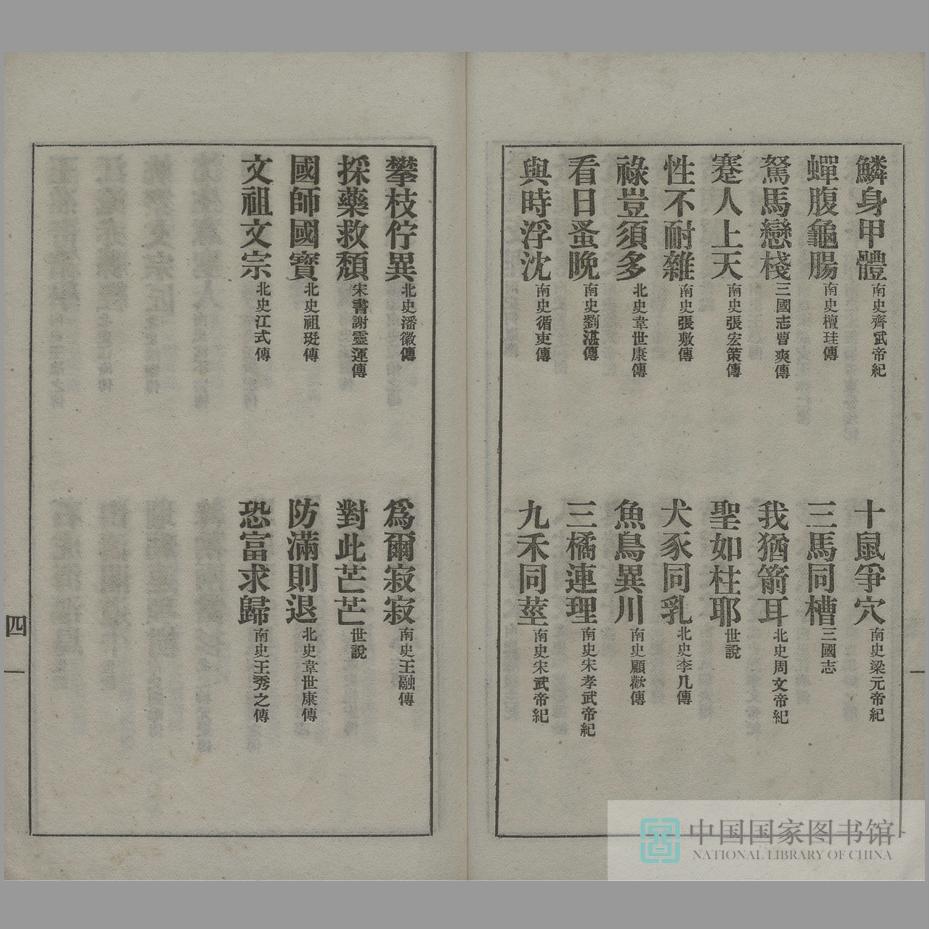 鱗身甲體南史齊武帝紀
十鼠爭穴南史梁元帝紀
蟬腹龜腸南史檀珪傳
三馬同槽三國志
駑馬戀棧三國志曹爽傳
我猶箭耳北史周文帝紀
蹇人上天南史張宏策傳
聖如柱耶世說
性不耐雜南史張敷傳
犬豕同乳北史李几傳
祿豈須多北史韋世康傳
魚鳥異川南史顧歡傳
看日蚤晚南史劉湛傳
三橘連理南史宋孝武帝紀
與時浮沈南史循吏傳
九禾同莖南史宋武帝紀
攀枝佇異北史潘徽傳
爲爾寂寂南史王融傳
採藥救頹宋書謝靈運傳
對此芒芒世說
國師國寶北史祖珽傳
防滿則退北史韋世康傳
文祖文宗北史江式傳
恐富求歸南史王秀之傳
四
中国国家图书馆
NATIONAL LIBRARY OF CHINA